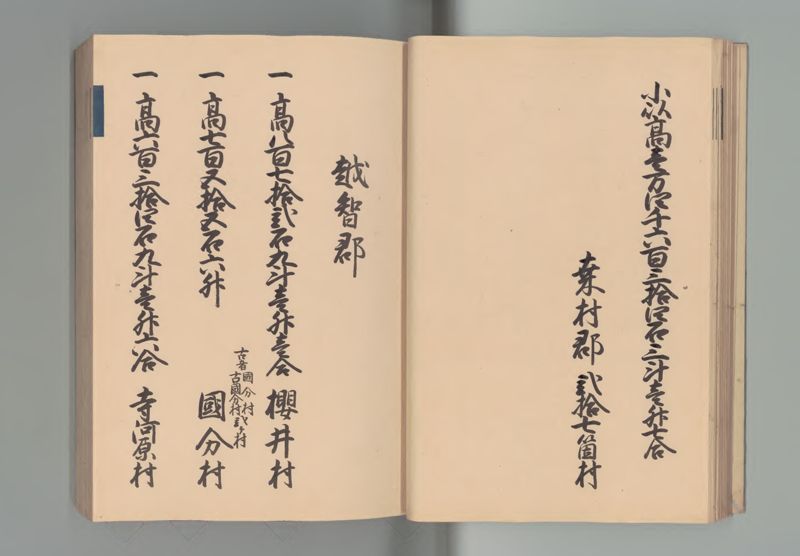 小以高壱万四千六百三拾四石三斗壱升七合
桒村郡 弐拾七箇村
越智郡
一 高八百七拾弐石九斗壱升壱合 櫻井村
一 高七百五拾五石六升 國分村
古者國分村
古國分村弐ヶ村
一 高六百三拾四石九斗壱升六合 寺河原村